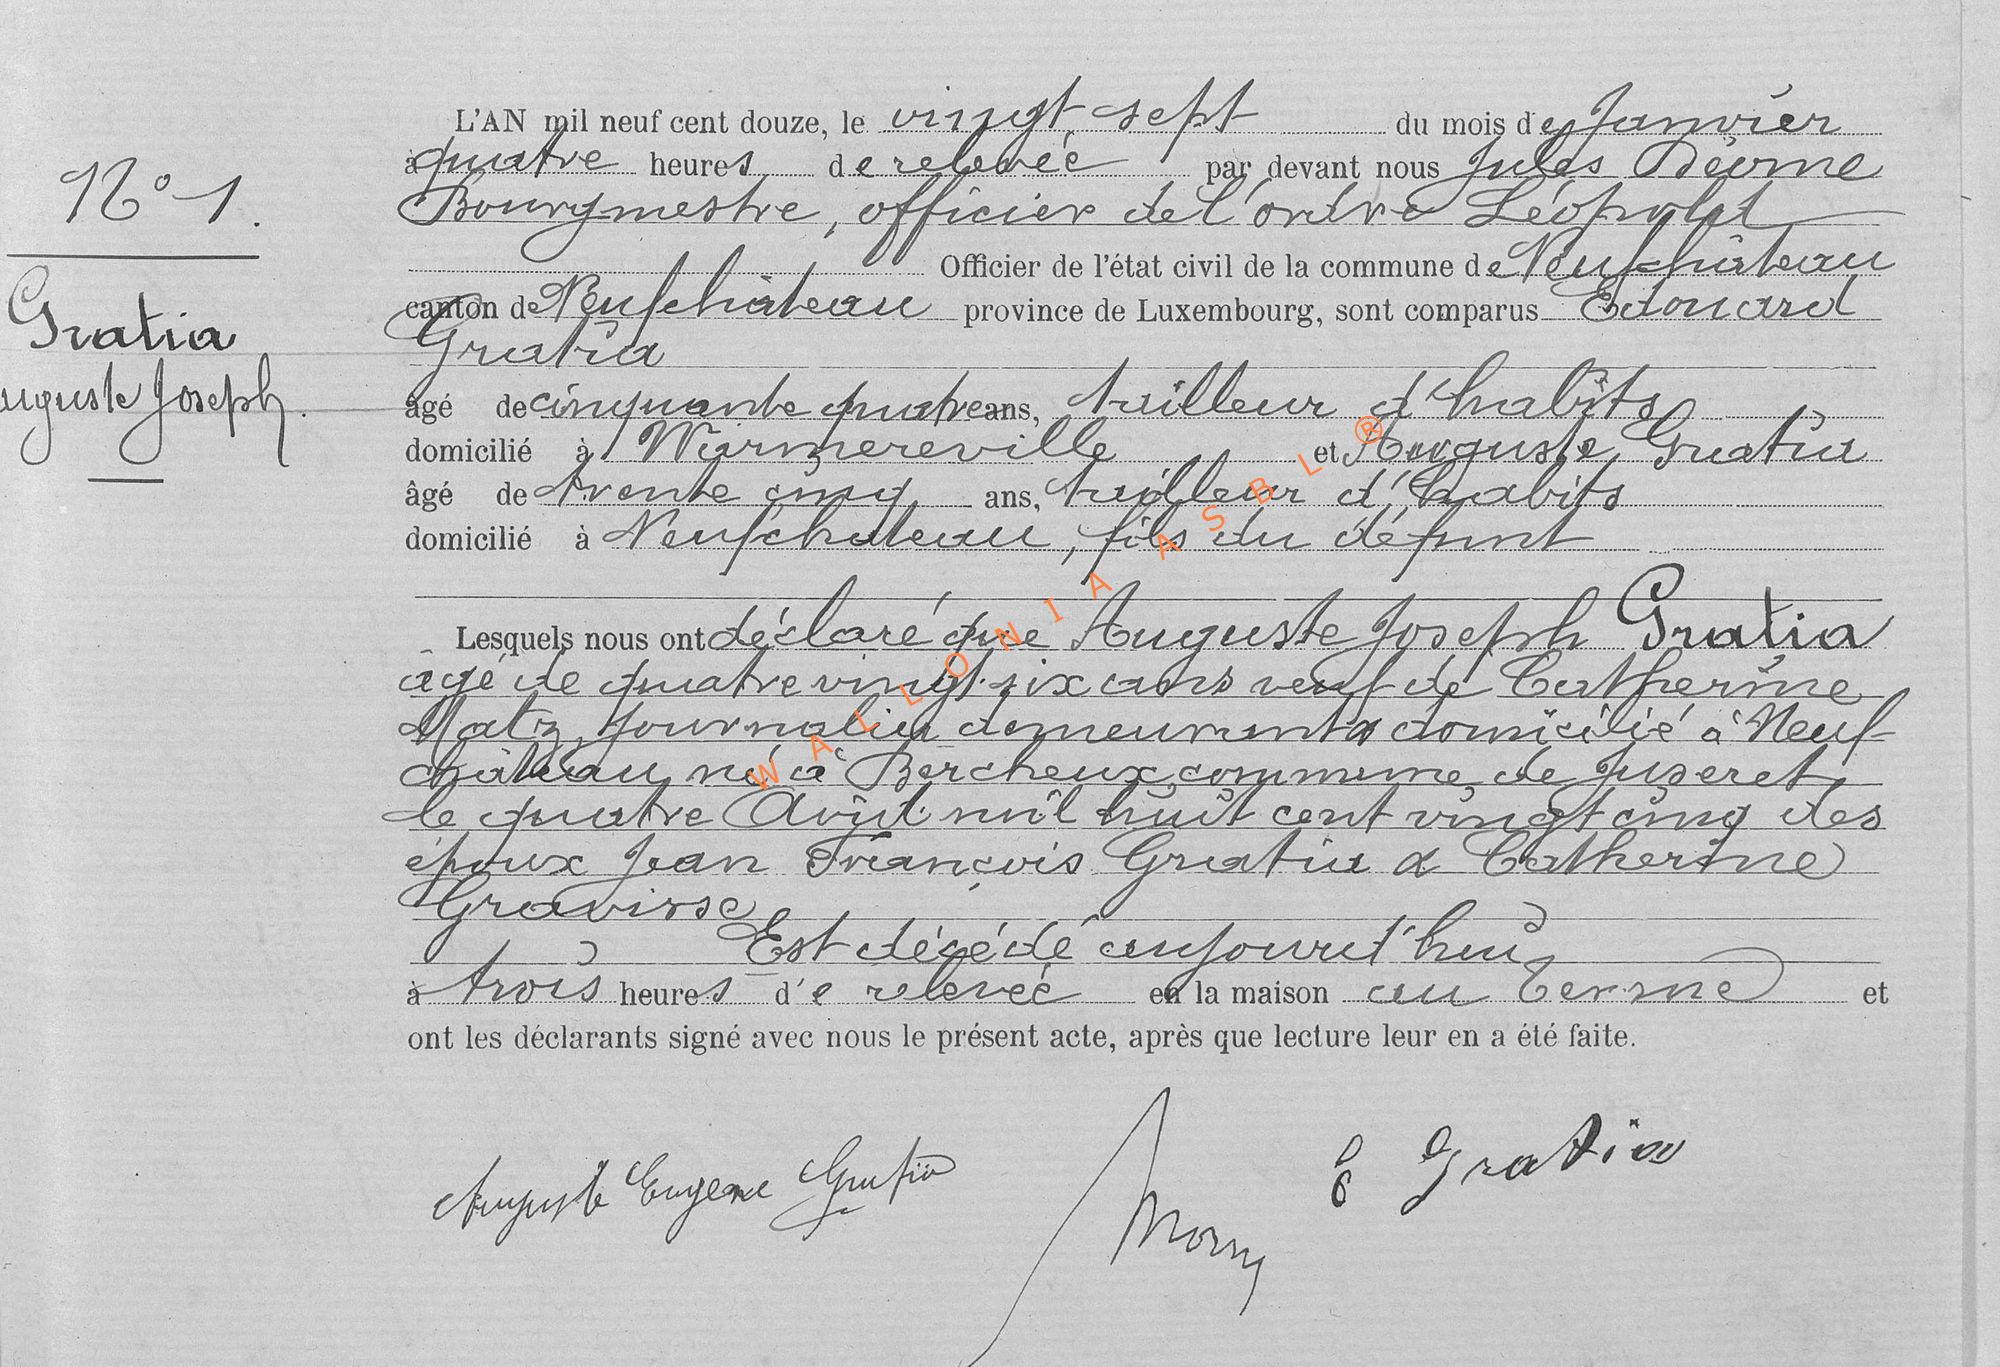 N° 1.
Gratia
Auguste Joseph.
L'AN mil neuf cent douze, le vingt sept du mois de Janvier
à quatre heures de relevée par devant nous Jules
Bourgmestre, officier de l'ordre Léopold
Officier de l'état civil de la commune de Neufchâteau
canton de Neufchâteau province de Luxembourg, sont comparus Edouard
Gratia
âgé de cinquante quatre ans, tailleur d'habits
domicilié à Warmereville et Auguste Gratia
âgé de trente cinq ans, tailleur d'habits
domicilié à Neufchateau, fils du défunt
Lesquels nous ont déclaré que Auguste Joseph Gratia
âgé de quatre vingt six ans veuf de Catherine
Matz, journalier demeurant & domicilié à Neuf-
château, né à Bercheux commune de Juseret
le quatre Avril mil huit cent vingt cinq des
époux Jean François Gratia & Catherine
Gravisse
Est décédé aujourd'hui
à trois heures de relevée en la maison au Terme et
ont les déclarants signé avec nous le présent acte, après que lecture leur en a été faite.
Auguste Eugene Gratia
E Gratia
WALLONIA ASBL ®